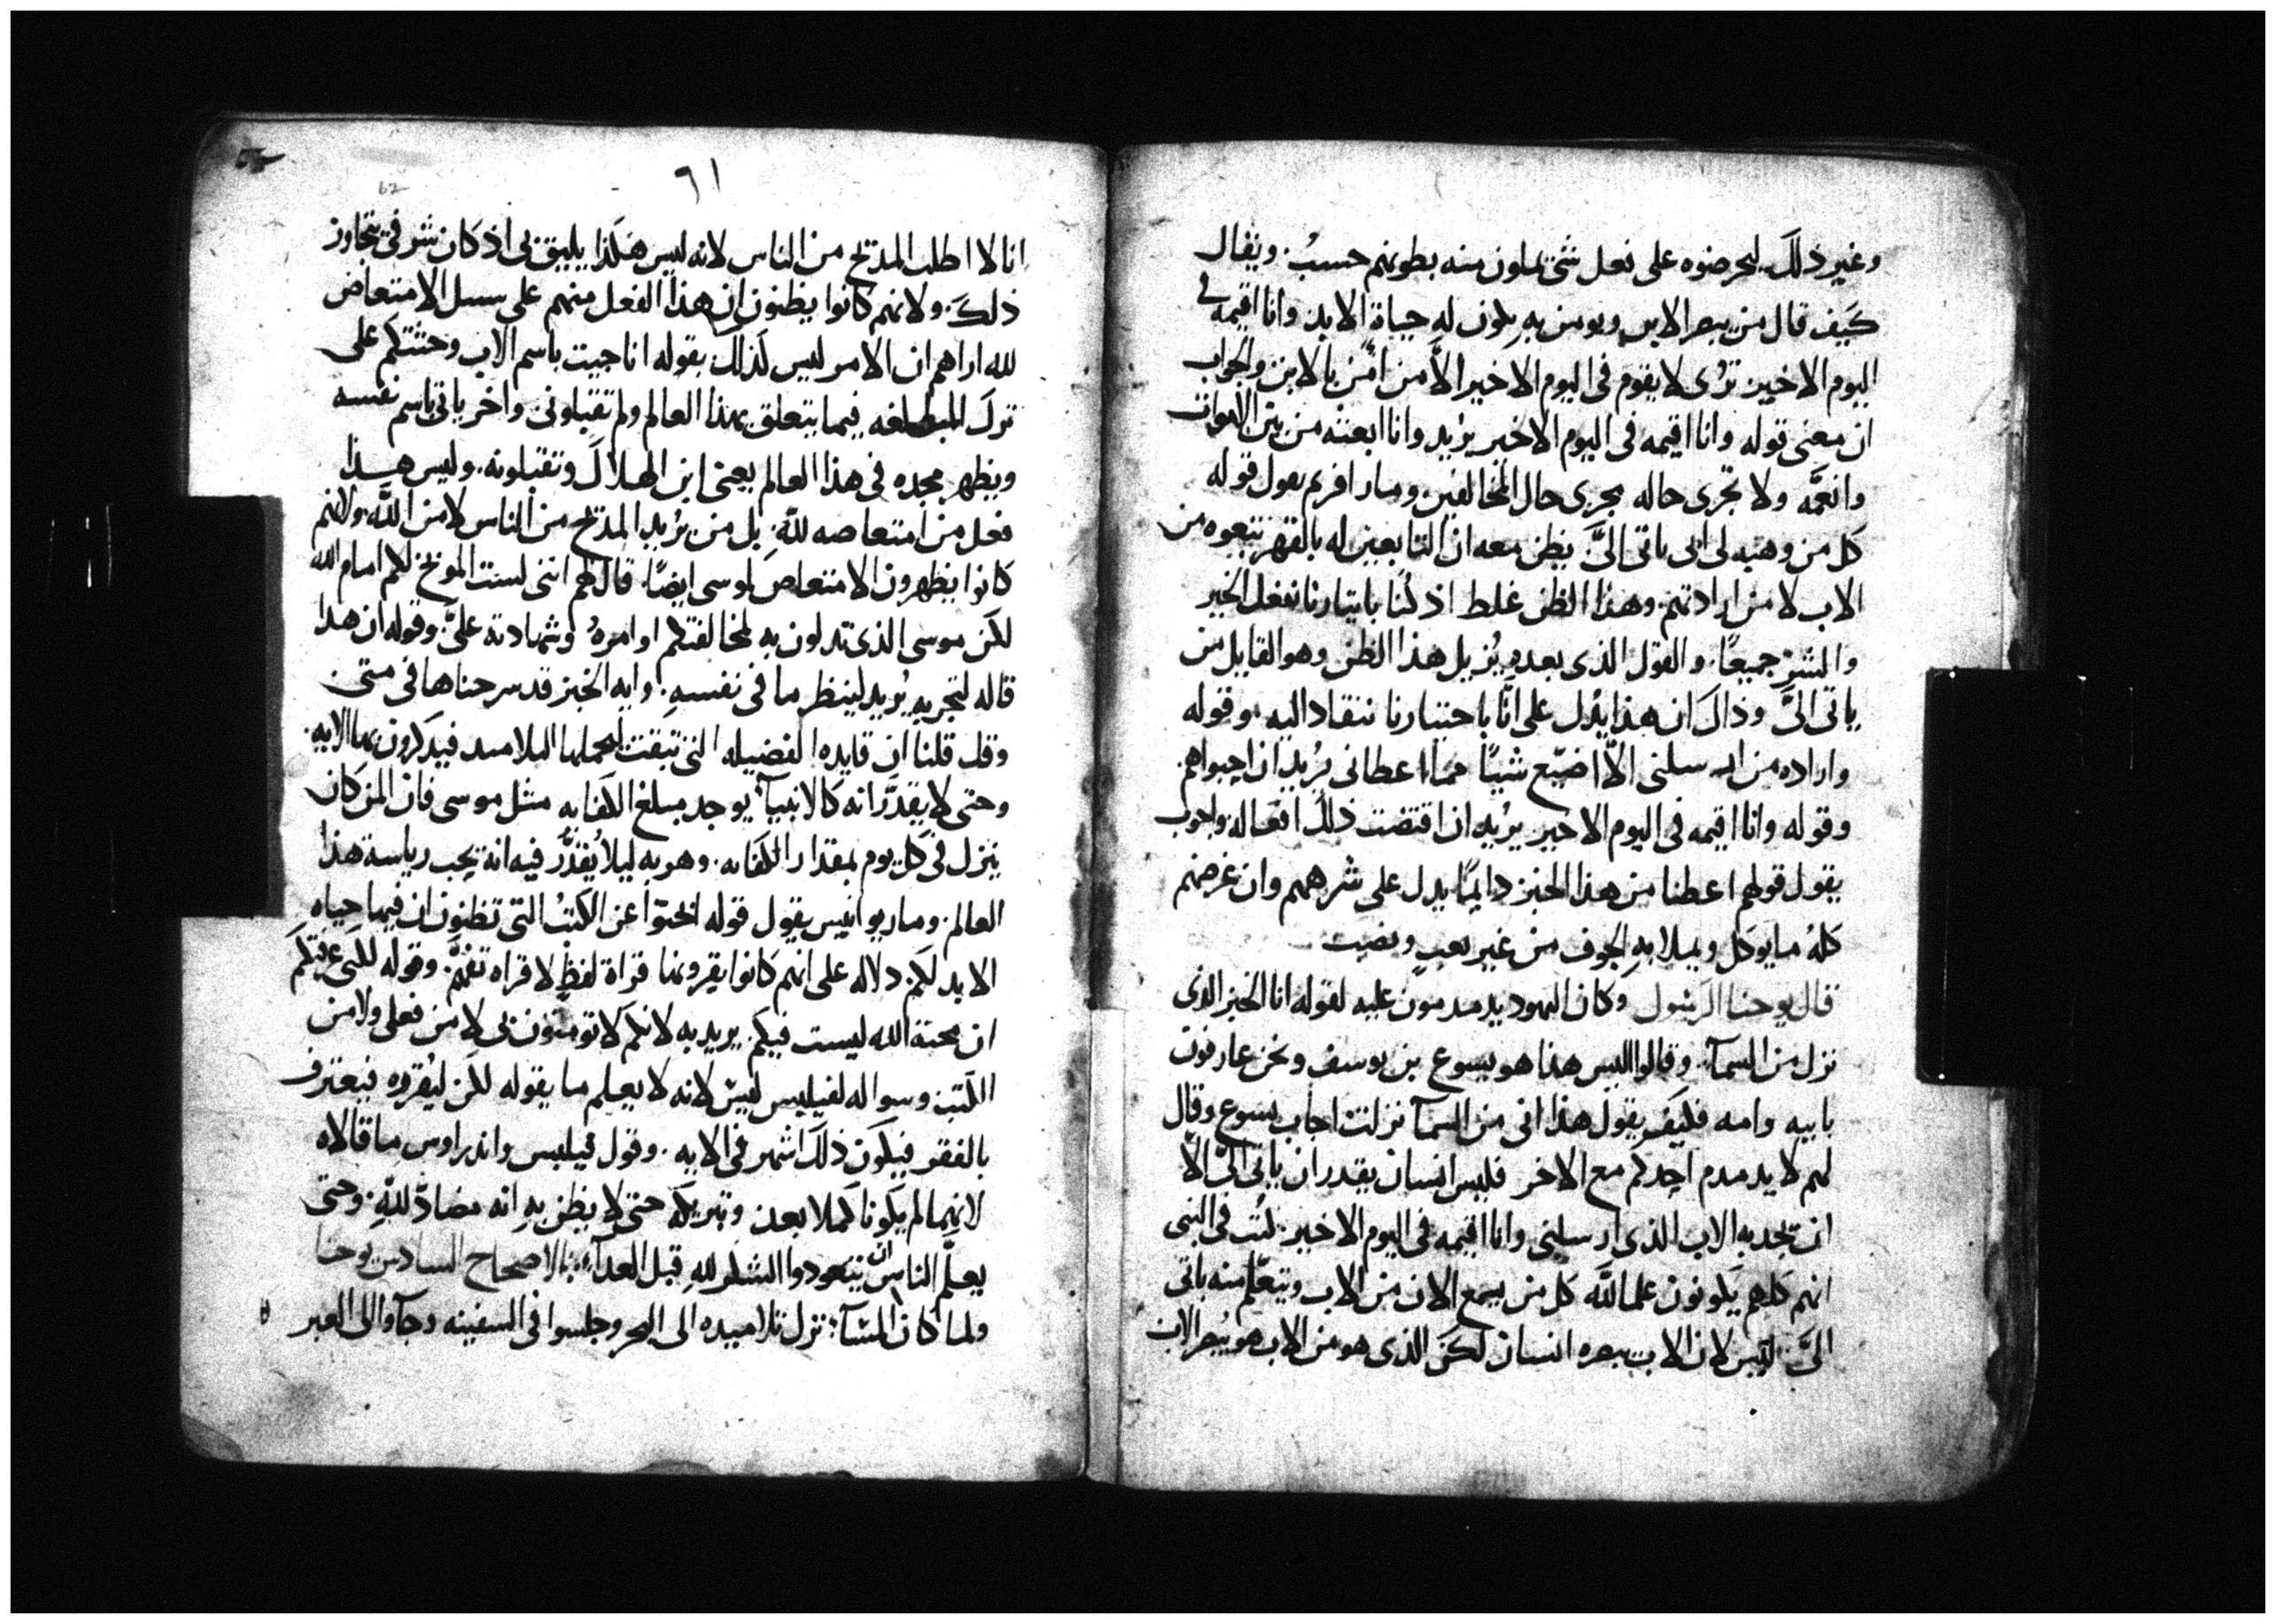 وغير ذلك ليحرضوه على فعل شى يملون منه بطونهم حسب. ويقال
كيف قال من يبصر الابن ويومن به يكون له حياة الابد وانا اقيمه فى
اليوم الاخير ترى لا يقوم فى اليوم الاخير الا من امن بالابن والجواب
ان معنى قوله وانا اقيمه فى اليوم الاخير يريد وانا ابعثه من بين الاموات
وانعمه ولا تجرى حاله مجرى حال المخالفين ومار افريم يقول قوله
كل من وهبه لى ابى ياتى الىّ يظن معه ان التابعين له بالقهر يتبعوه من
الاب لا من ارادتهم. وهذا الظن غلط اذ كنا باختيارنا نفعل الخير
والشر جميعًا. والقول الذى بعده يزيل هذا الظن وهو القايل من
ياتى الىّ وذاك ان هذا يدل على انّا باختيارنا ننقاد اليه. وقوله
واراده من ارسلنى الّا اضيّع شيئًا مما اعطانى يريد ان احبواهم.
وقوله وانا اقيمه فى اليوم الاخير يريد ان اقتضت ذلك افعاله
يقول قولهم اعطنا من هذا الخبز دايمًا يدل على شرههم وان غرضهم
كلهُ ما يوكل ويملا بهِ الجوف من غير تعبٍ ونصب
قال يوحنا الرسول وكان اليهود يدمدمون عليه لقوله انا الخبز الذى
نزل من السمآ. وقالوا اليس هذا هو يسوع بن يوسف ونحن عارفون
بابيه وامه فكيف يقول هذا انى من السمآ نزلت اجاب يسوع وقال
لهم لا يدمدم احدكم مع الاخر فليس انسان يقدر ان ياتى الىّ الّا
ان يجدبه الاب الذى ارسلنى وانا اقيمه فى اليوم الاخير. كُتب فى النبى
انهم كلهم يكونون علما لله كل من يسمع الان من الاب ويتعلم منه ياتى
الىّ. ليس لان الاب يبصره انسان لكن الذى هو من الاب هو يبصر الاب
٦١
62
انا لا اطلب المديح من الناس لانه ليس هكذا يليق بى اذ كان شرفى يتجاوز
ذلك. ولانهم كانوا يظنون ان هذا الفعل منهم على سبيل الامتعاض
لله اراهم ان الامر ليس كذلك بقوله انا جيت باسم الاب وحثثتكم على
ترك فيما يتعلق بهذا العالم ولم تقبلونى واخر ياتى باسم نفسه
ويظهر مجده فى هذا العالم يعنى ابن الهلاك وتقبلونه. وليس هذا
فعل من امتعاضه للهِ بل من يريد المديح من الناس لا من الله ولانهم
كانوا يظهرون الامتعاض لموسى ايضًا. قال لهم اننى لست الموبخ لكم امام الله
لكن موسى الذى تدلون به لمخالفتكم اوامرهُ وشهادته علىّ. وقوله ان هذا
قاله لتجربهِ يريد لينظر ما فى نفسهِ. وايه الخبز قد شرحناها فى متى
وقد قلنا ان فايده الفضيله التى تبقت ليحملها التلاميد فيدكرون بها الايه.
وحتى لا يقدّر انه كالانبيآ يوجد مبلغ الكفايه مثل موسى فان المن كان
ينزل فى كل يوم بمقدار الكفايه. وهربه ليلا يُقدّر فيه انه يحب رياسة هذا
العالم. ومار يوانيس يقول قوله ابحثوا عن الكتُب التى تظنون ان فيها حياه
الابد لكم. دلاله على انهم كانوا يقرونها قراة لفظٍ لا قراه تفهّم. وقوله لكنى عرفتكم
ان محبة الله ليست فيكم. يريد به لانكم لا تومنون بى لا من فعلى ولا من
الكتب وسواله لفيلبس ليس لانه لا يعلم ما يقوله لكن ليُقرره فيعترف
بالفقر فيكون ذلك اشهر فى الايه. وقول فيلبس واندراوس ما قالاه
لانهما لم يكونا كملا بعد. وتبريكه حتى لا يظن بهِ انه مضادّ للهِ. وحتى
يعلّم الناس ان يتعودوا الشكر للهِ قبل الغدآ. الاصحاح السادس يوحنا
ولما كان المسآ نزل تلاميده الى البحر وجلسوا فى السفينه وجآوا الى العبر